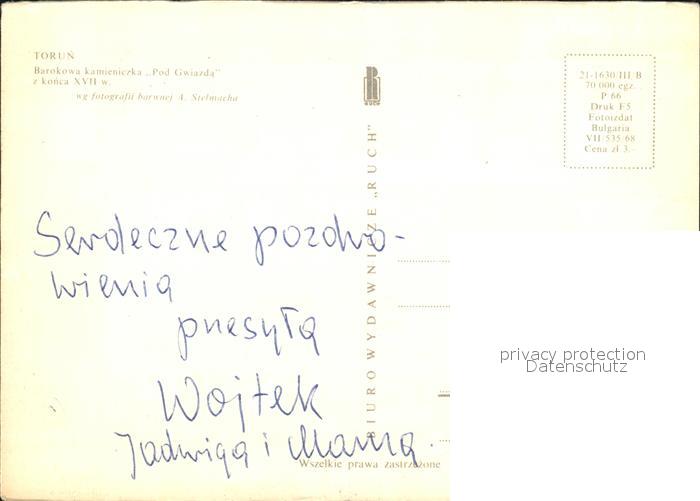 TORUŃ
Barokowa kamieniczka „Pod Gwiazdą"
z końca XVII w.
wg fotografii barwnej A. Stelmacha
RUCH
21-1630/III B
70 000 egz.
P 66
Druk F5
Fotoizdat
Bulgaria
VII 535/68
Cena zł 3.-
BIURO WYDAWNICZE „RUCH"
Serdeczne pozdro-
wienia
przesyłą
Wojtek
Jadwiga i Mama.
Wszelkie prawa zastrzeżone
privacy protection
Datenschutz